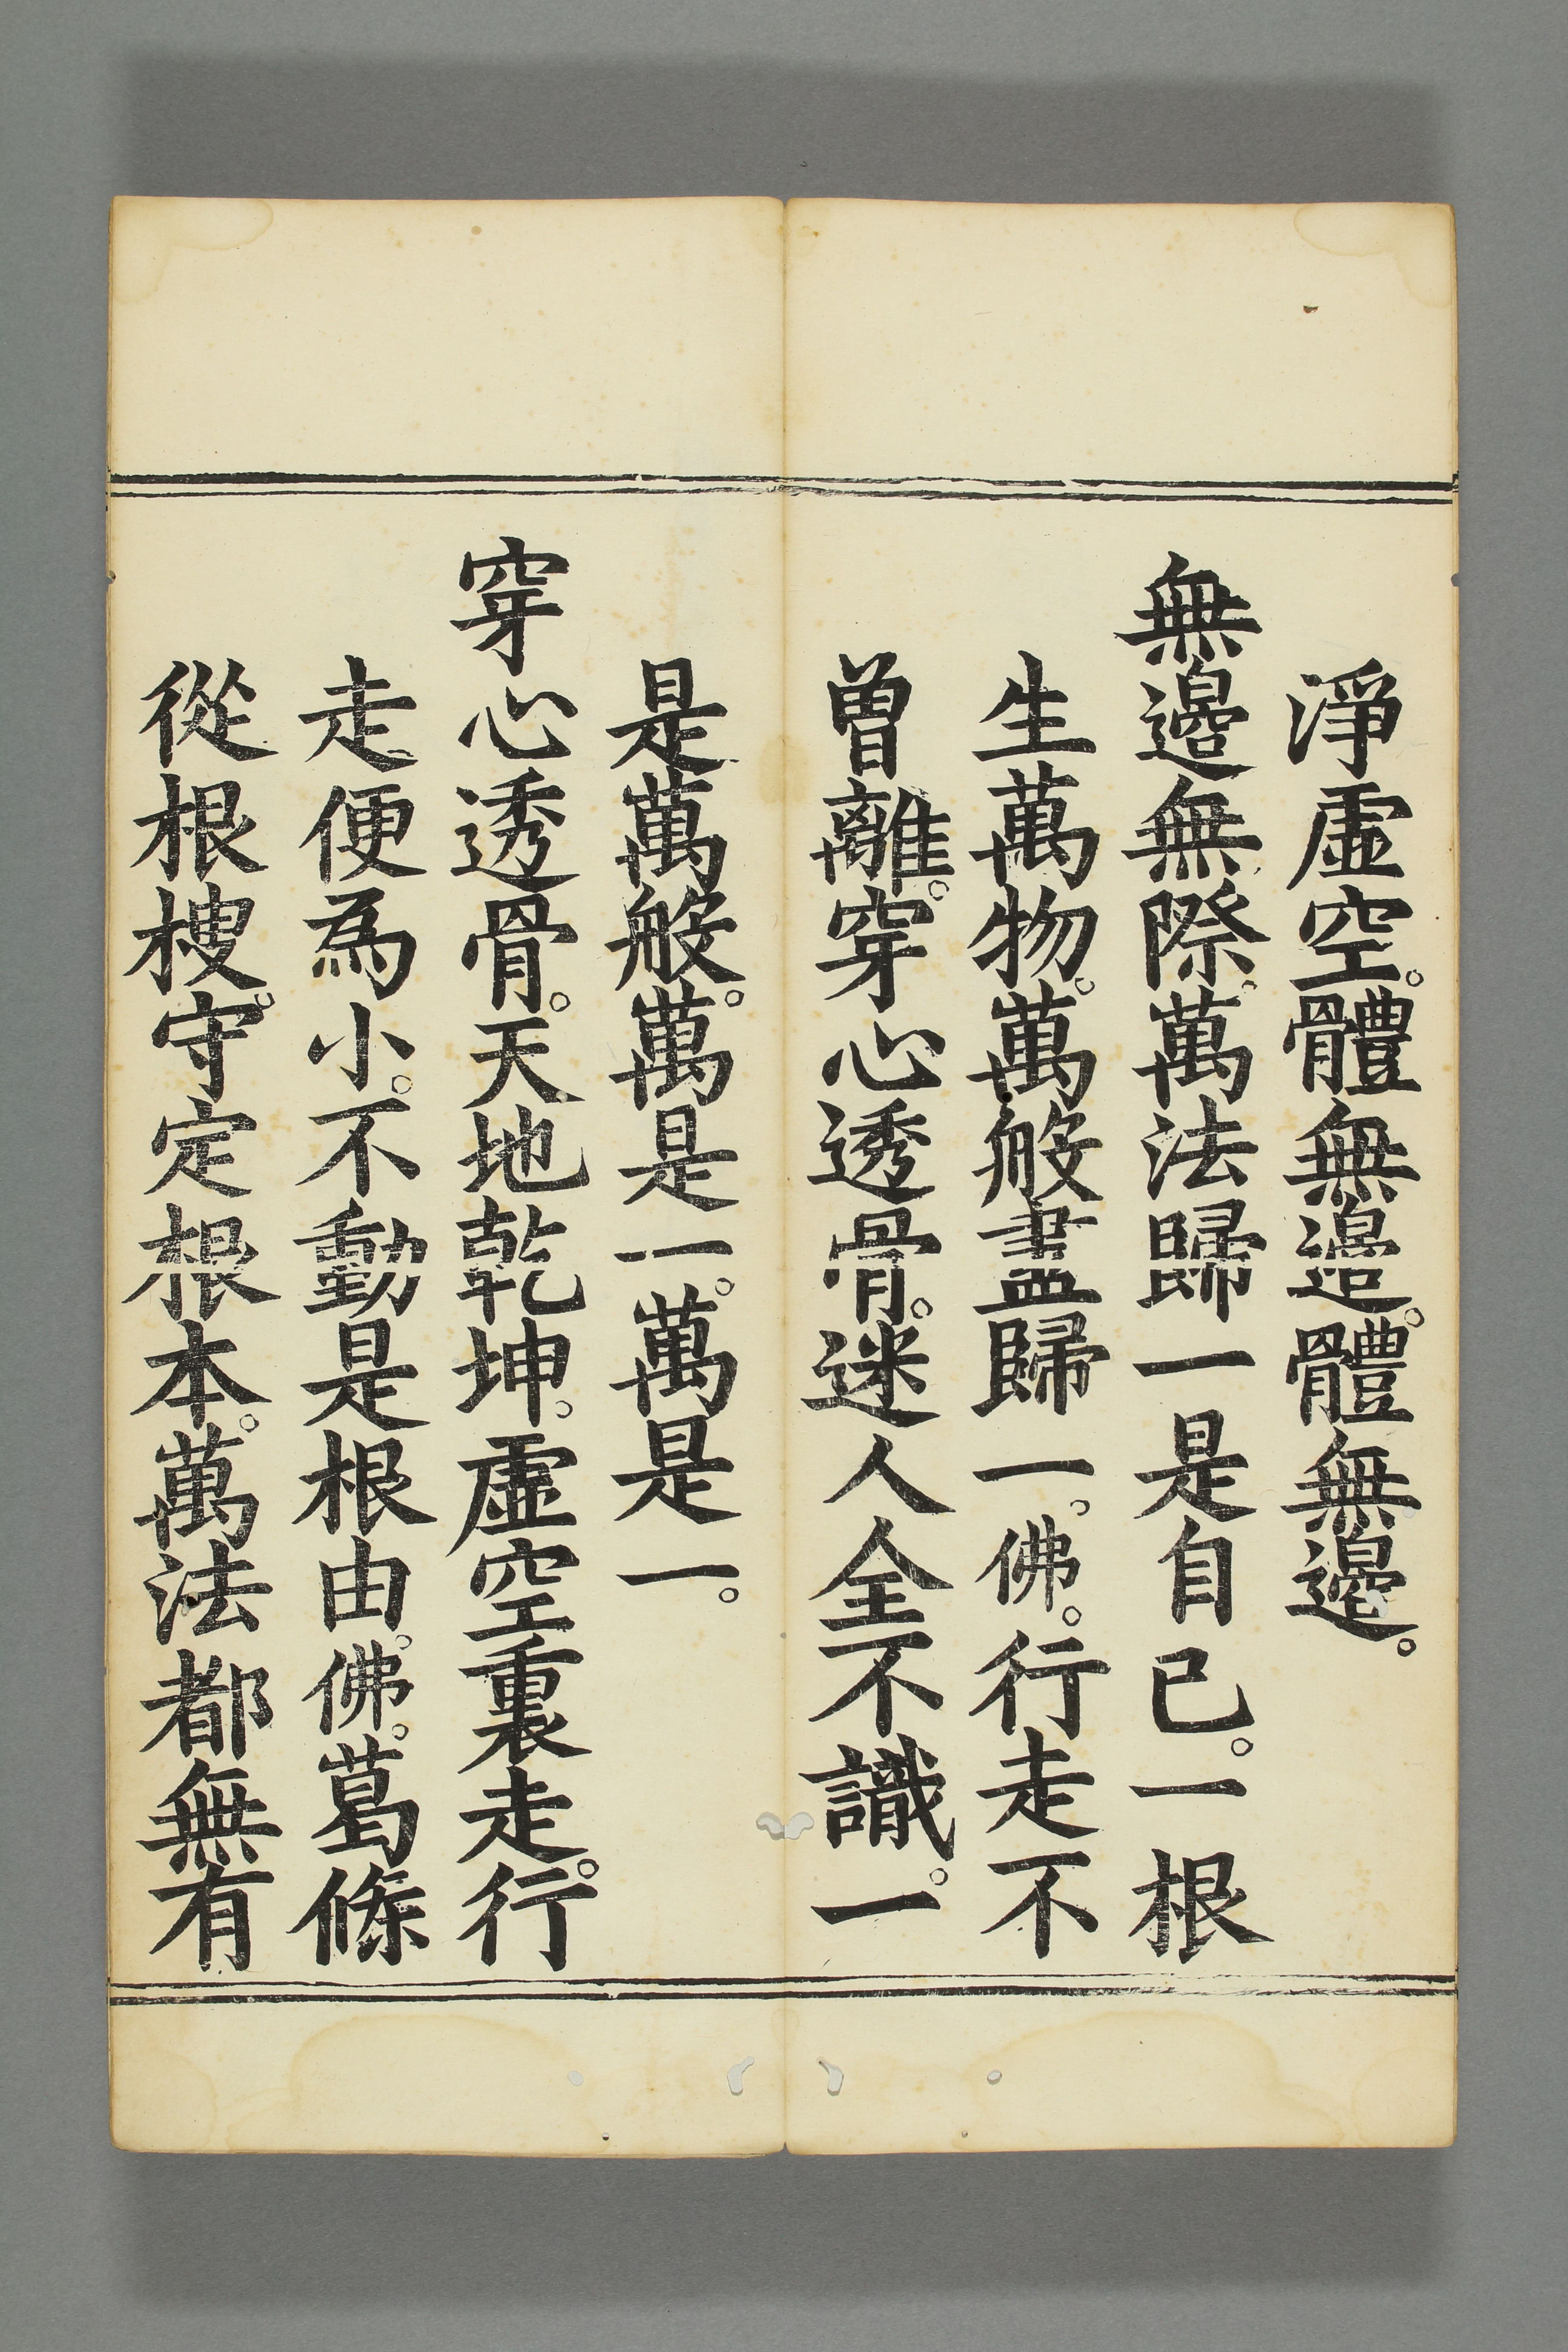 淨虛空。體無邊。體無邊。
無邊無際。萬法歸一是自己。一根
生萬物。萬般盡歸一。佛。行走不
曽離。穿心透骨。迷人全不識。一
是萬般。萬是一。萬是一。
穿心透骨。天地乾坤。虛空裏走。行
走便為小。不動是根由。佛。葛條
從根椶。守定根本。萬法都無有